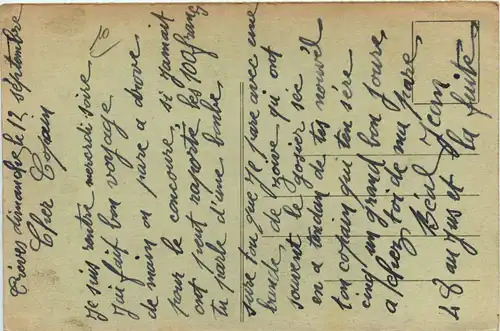 Trèves dimanche le 12 septembre
Cher Copain
Je suis rentre mercredi soire
J'ai fuit bon voyage
de main on pure a drove
pour le concoure, si jamait
ont peut raporté les 100 frang
tu parle d'une bombe
sure ton que je pare avec une
bande de zove qu'i ont
souvent le gosier sée
en a tendan de tes nouvel
ton copain qui t'en sère
cinq un grand bon jours
a chez toi de ma pare
Jean
48 au jus et la fuite